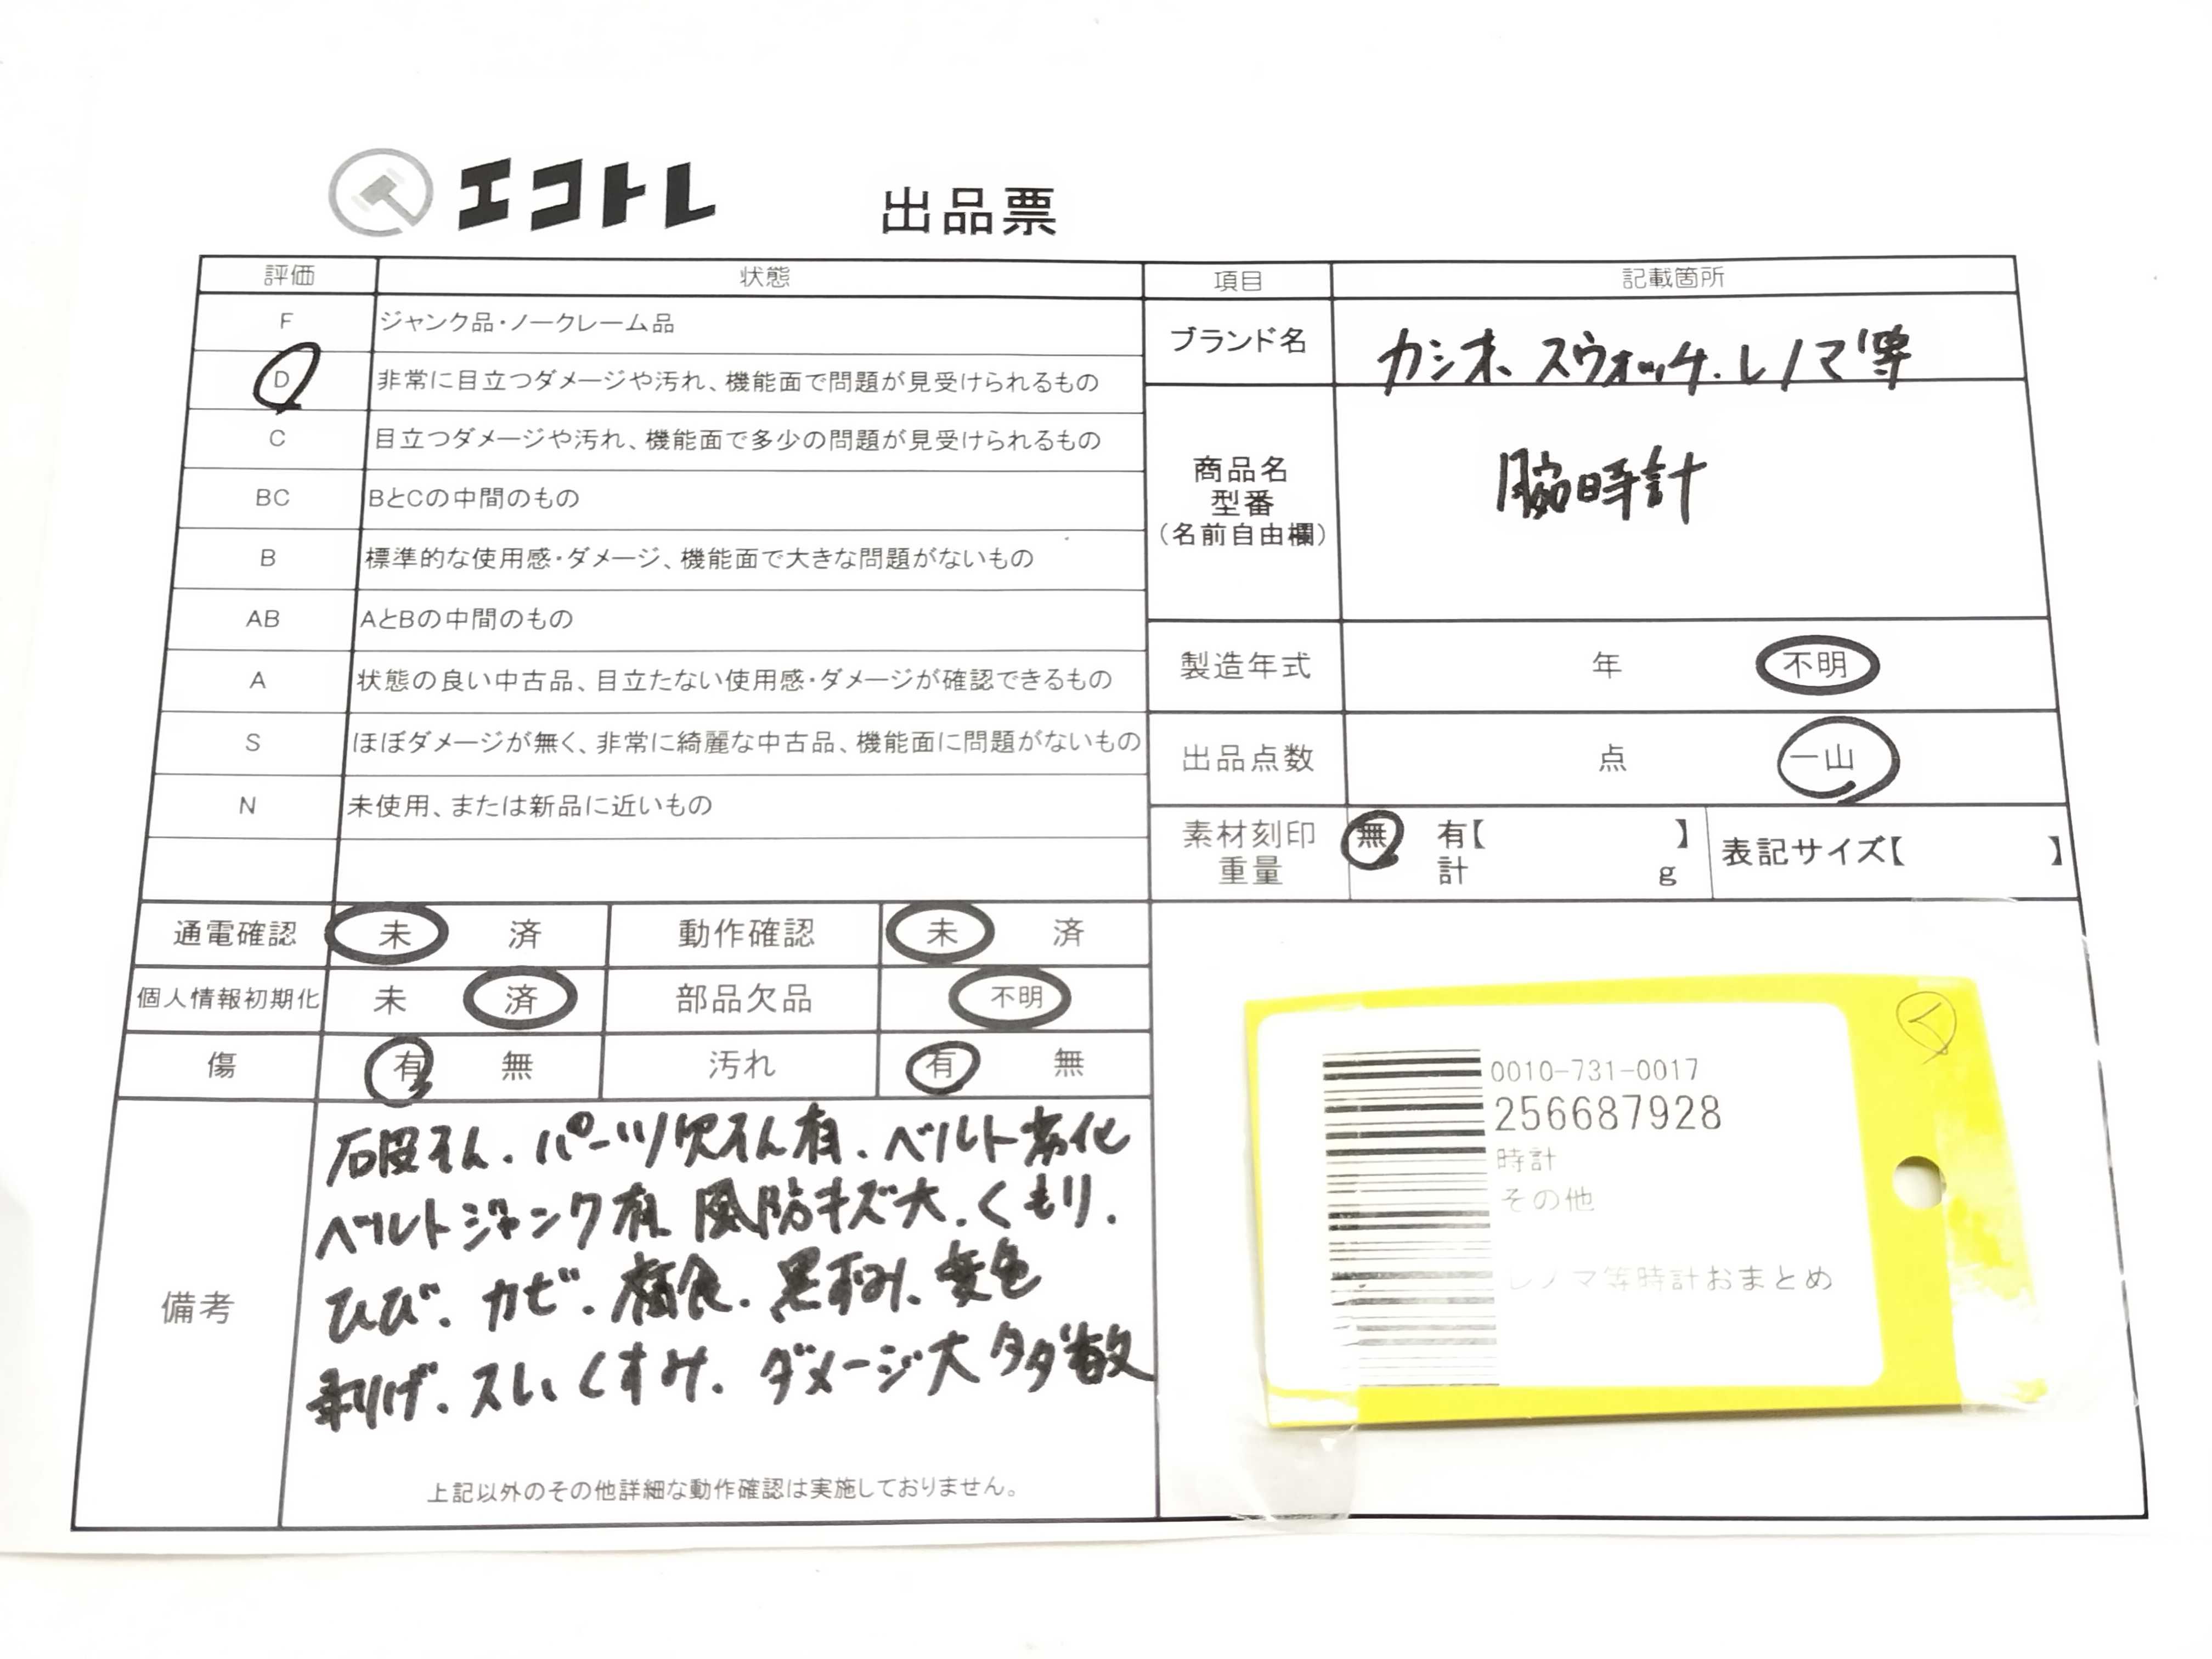 エコトレ 出品票
評価 状態
F ジャンク品・ノークレーム品
D 非常に目立つダメージや汚れ、機能面で問題が見受けられるもの
C 目立つダメージや汚れ、機能面で多少の問題が見受けられるもの
BC BとCの中間のもの
B 標準的な使用感・ダメージ、機能面で大きな問題がないもの
AB AとBの中間のもの
A 状態の良い中古品、目立たない使用感・ダメージが確認できるもの
S ほぼダメージが無く、非常に綺麗な中古品、機能面に問題がないもの
N 未使用、または新品に近いもの
項目 記載箇所
ブランド名 カシオ、スウォッチ.レノマ等
商品名
型番
(名前自由欄)
腕時計
製造年式 年 不明
出品点数 点 一山
素材刻印 無 有【 】
重量 計 g
表記サイズ【 】
通電確認 未 済 動作確認 未 済
個人情報初期化 未 済 部品欠品 不明
傷 有 無 汚れ 有 無
備考
石破そん.パーツ欠そん有.ベルト劣化
ベルトジャンク有 風防キズ大.くもり.
ひび.カビ.腐食.黒ずみ、変色
剥げ.スレ、くすみ.ダメージ大タダ数
上記以外のその他詳細な動作確認は実施しておりません。
0010-731-0017
256687928
時計
その他
レノマ等時計おまとめ